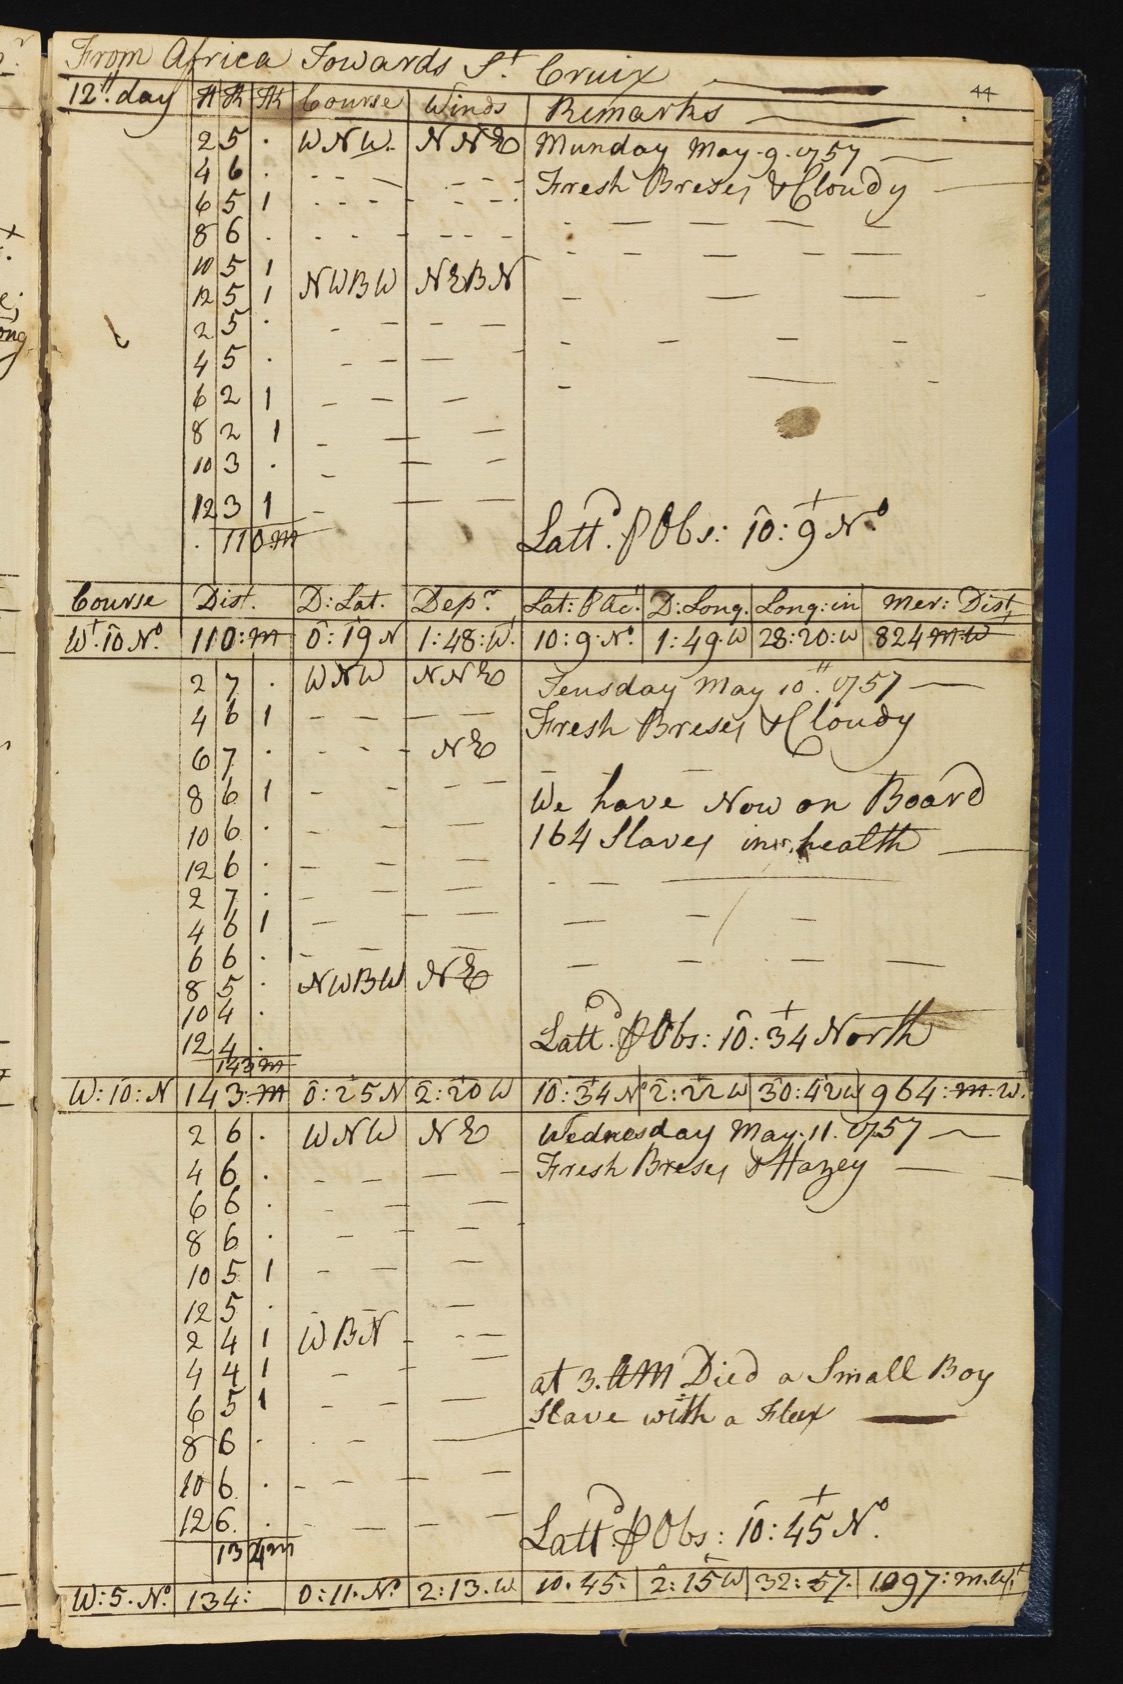 From Africa Towards St Cruix
44
12th day H K HK Course Winds Remarks
2 5 . WNW. NNE Munday May. 9. 1757
4 6 . - - - - - - Fresh Breses & Cloudy
6 5 1 - - - - - - -
8 6 . - - - - - - -
10 5 1 NWBW NEBN
12 5 1
2 5 . - - - -
4 5 . - - -
6 2 1 - - -
8 2 1 - - -
10 3 . - - -
12 3 1 - - -
. 110 m Lattd. P Obs: 10: 9 No
Course Dist. D: Lat. Depr. Lat: P Ac: D: Long. Long: in Mer: Dist
Wt. 10 No. 110: m 0: 19 N 1: 48: W. 10: 9 No. 1: 49 W 28: 20: W 824 m. W
2 7 . WNW NNE Teusday May 10th. 1757
4 6 1 - - - - Fresh Breses & Cloudy
6 7 . - - - NE
8 6 1 - - - - We have Now on Board
10 6 . - - - 164 Slaves in health
12 6 . - - -
2 7 . - - -
4 6 1 - - -
6 6 . - - -
8 5 . NWBW NE
10 4 .
12 4 . Lattd. P Obs: 10: 34 North
143 m
W: 10: N 143: m 0: 25 N 2: 20 W 10: 34 No 2: 22 W 30: 42 W 964: m. W.
2 6 . WNW NE Wednesday May. 11. 1757
4 6 . - - - - Fresh Breses & Hazey
6 6 . - - - -
8 6 . - - -
10 5 1 - - -
12 5 . - - -
2 4 1 WBN - - -
4 4 1 - - - at 3. AM Died a Small Boy
6 5 1 - - - Slave with a Flux
8 6 . - -
10 6 . - - - -
12 6. . - - - - Lattd. P Obs: 10: 45 No.
134 m
W: 5. No. 134: 0: 11. No. 2: 13. W. 10. 45. 2: 15 W 32: 57. 1097: m. Wt.